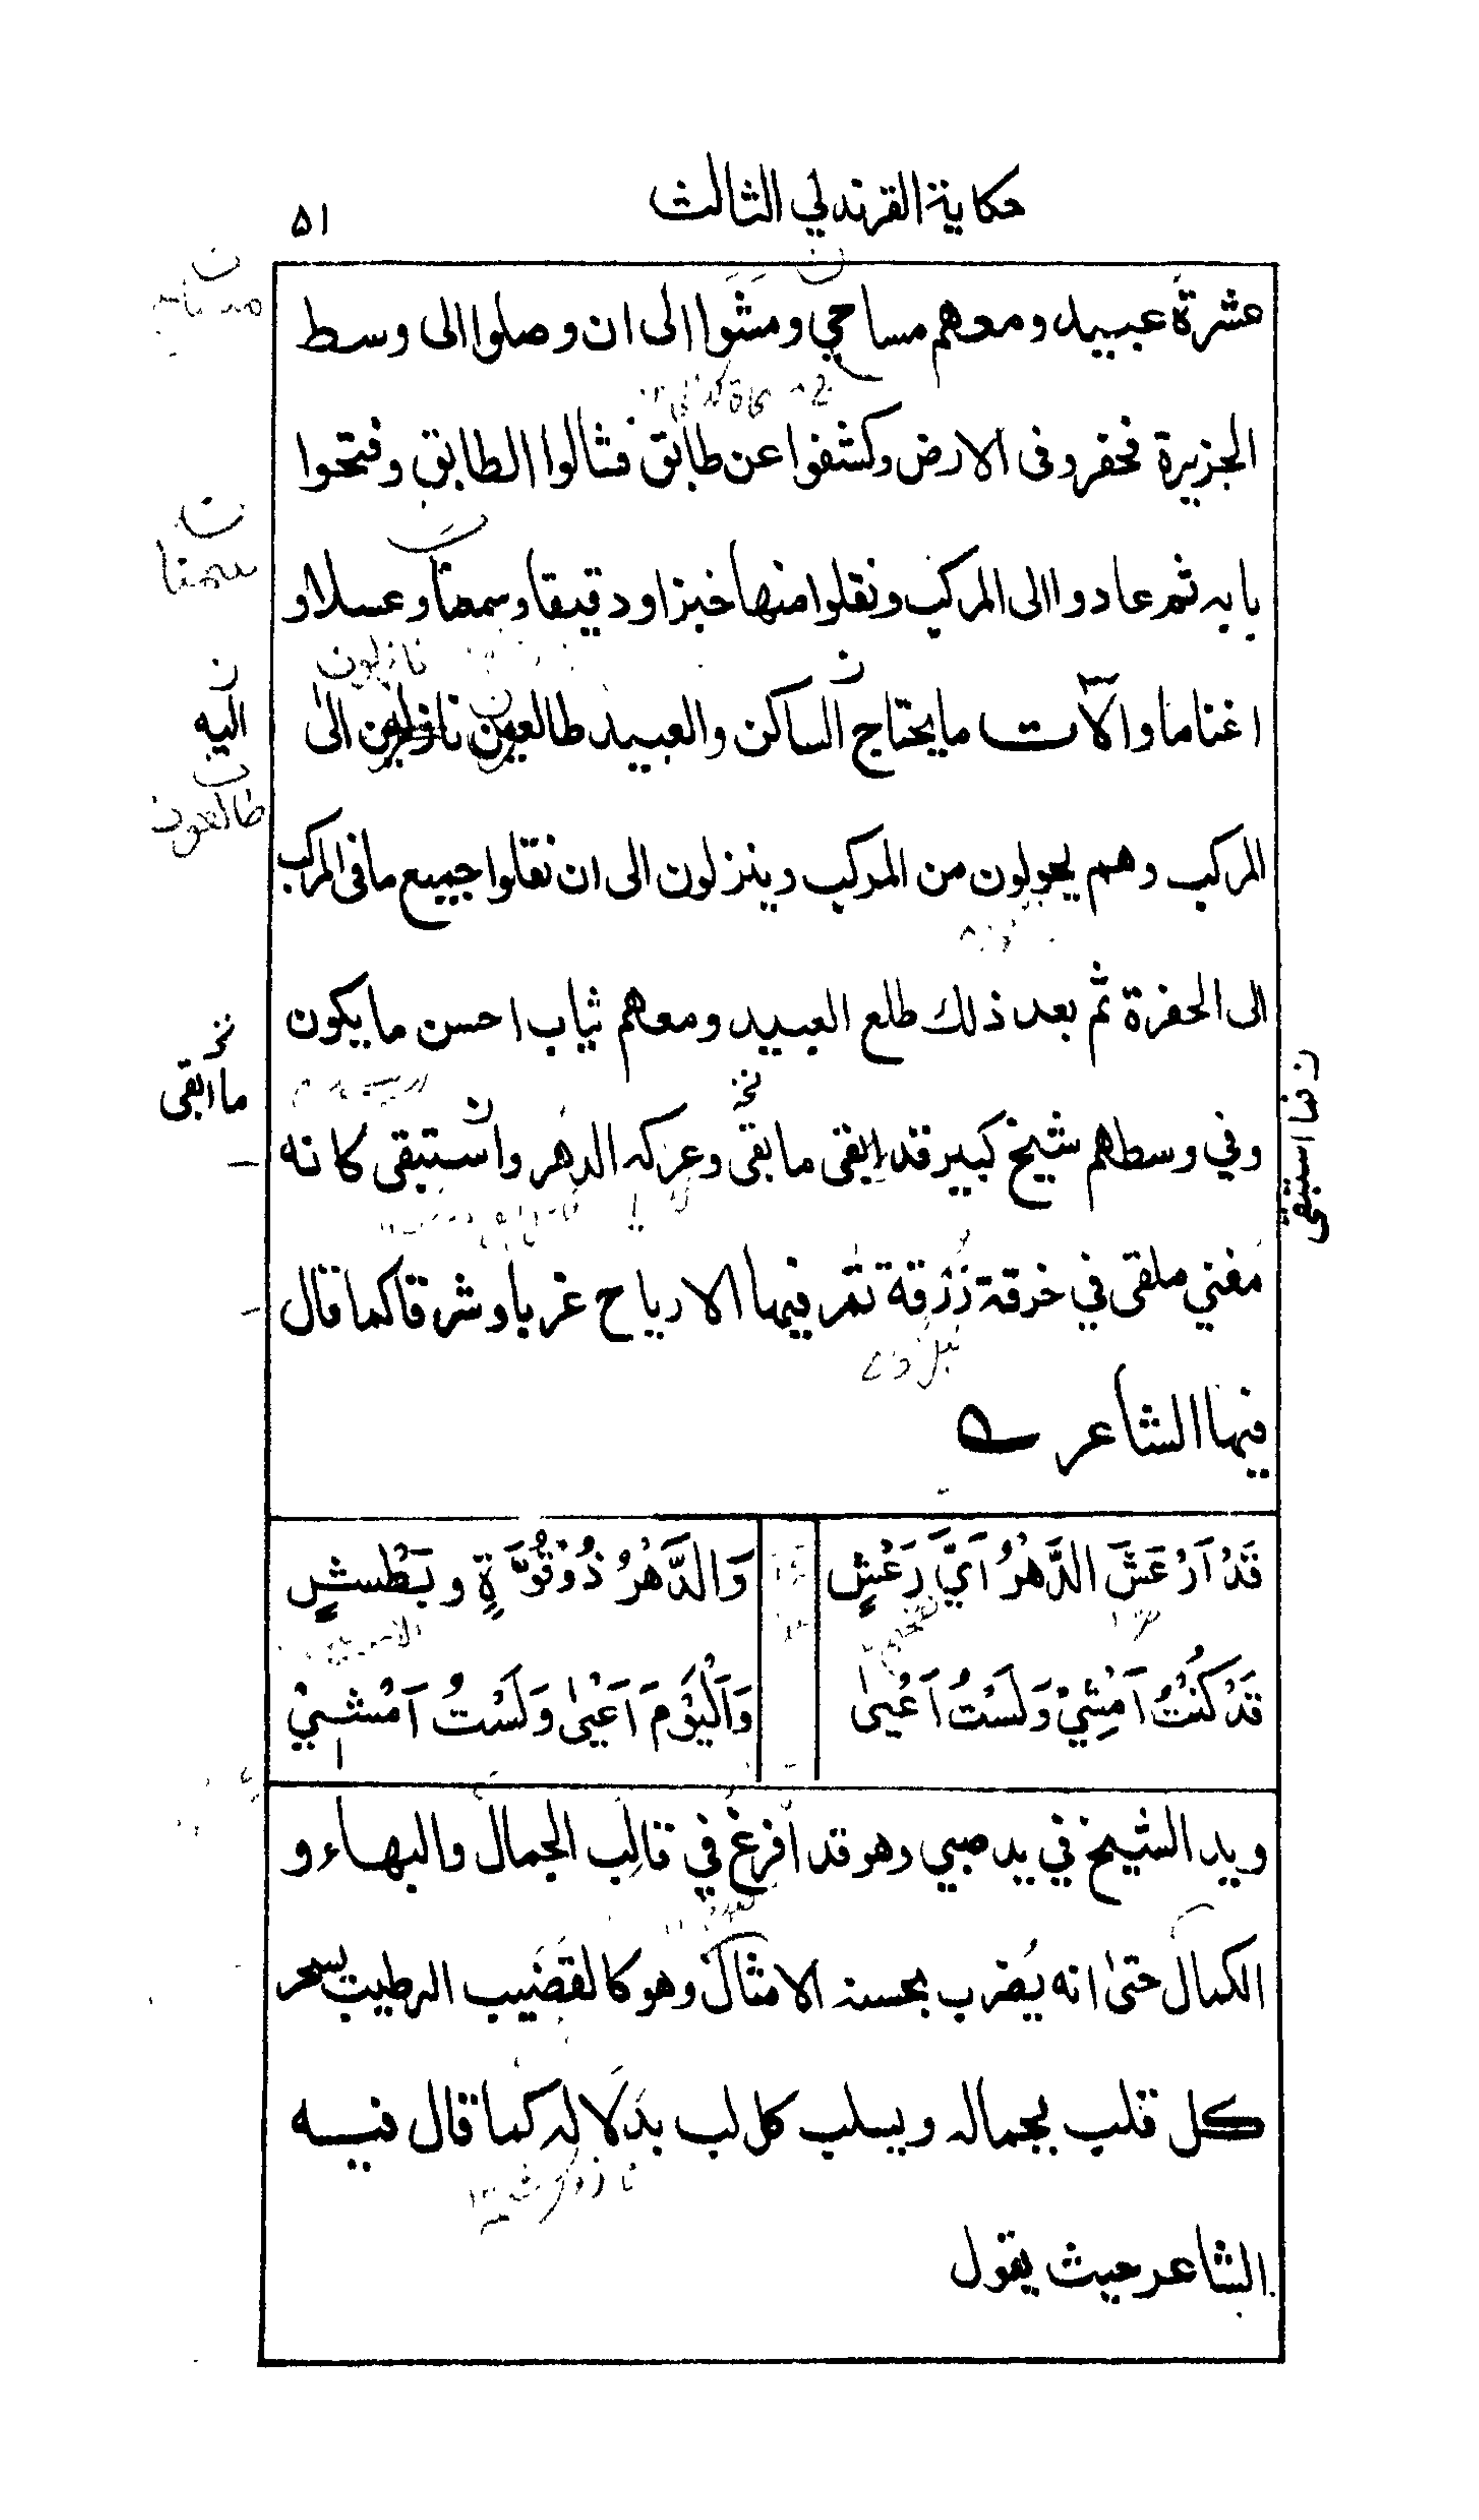 حكاية القرندلي الثالث
۵۱
عشرة عبيد ومعهم مساحي ومشَوا الى ان وصلوا الى وسط
الجزيرة فحفروفى الارض وكشفوا عن طابق فشالوا الطابق وفتحوا
بابه ثم عادوا الى المركب ونقلوا منها خبزا ودقيقا وسمصنا وعسلا و
اغناما والآت مايحتاج الساكن والعبيد طالعين الى
المركب وهم يحولون من المركب وينزلون الى ان نقلوا جميع مافى المركب
الى الحفرة ثم بعد ذلك طلع العبيد ومعهم ثياب احسن مايكون
وفي وسطهم شيخ كبير قد ابقى مابقى وعركه الدهر واستبقى كانه
مغني ملقى في خرقة زرقة تمر فيها الارياح غربا وشرقا كما قال
فيها الشاعر
قَدْ اَرْعَشَ الدَّهْرُ اَيَّ رَعْشٍ وَالدَّهْرُ ذُوْقُوَّةٍ وبَطْشٍ
قَدْ كُنْتُ اَمْشِيْ وَلَسْتُ اَعْيىٰ وَالْيَوْمَ اَعْيىٰ وَلَسْتُ اَمْشِيْ
ويد الشيخ في يد صبي وهو قد اُفرغ في قالِب الجمال والبهاء و
الكمال حتىٰ انه يُضرب بحسنه الامثال وهو كالقضيب الرطيب يسحر
كل قلب بجماله ويسلب كل لب بدَلاله كما قال فيه
الشاعر حيث يقول
ن
ن
سمنا
ن
اليه
طالعون
نازلون
نخ
ما ابقى
ن فما استبقى